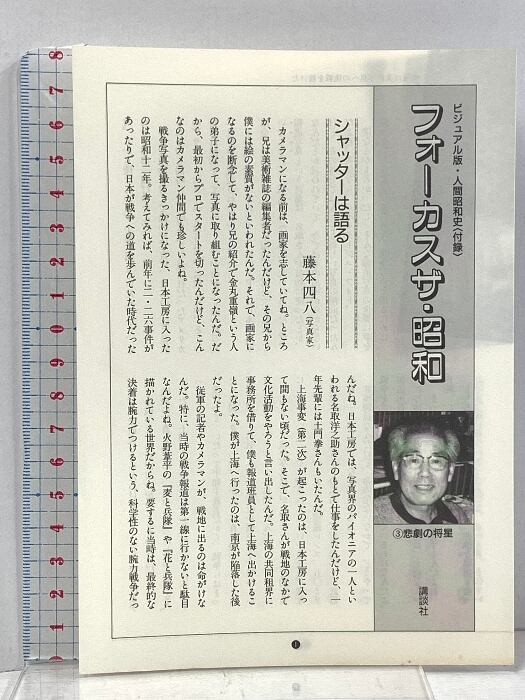 ビジュアル版・人間昭和史〈付録〉
フォーカスザ・昭和
③悲劇の将星
講談社
シャッターは語る
藤本四八〈写真家〉
カメラマンになる前は、画家を志していてね。ところ
が、兄は美術雑誌の編集者だったんだけど、その兄から
僕には絵の素質がないといわれたんだ。それで、画家に
なるのを断念して、やはり兄の紹介で金丸重嶺という人
の弟子になって、写真に取り組むことになったんだ。だ
から、最初からプロでスタートを切ったんだけど、こん
なのはカメラマン仲間でも珍しいよね。
戦争写真を撮るきっかけになった、日本工房に入った
のは昭和十二年。考えてみれば、前年に二・二六事件が
あったりで、日本が戦争への道を歩んでいた時代だった
んだね。日本工房では、写真界のパイオニアの一人とい
われる名取洋之助さんのもとで仕事をしたんだけど、一
年先輩には土門拳さんもいたんだ。
上海事変（第二次）が起こったのは、日本工房に入っ
て間もない頃だった。そこで、名取さんが戦地のなかで
文化活動をやろうと言い出したんだ。上海の共同租界に
事務所を借りて、僕も報道班員として上海へ出かけるこ
とになった。僕が上海へ行ったのは、南京が陥落した後
だったよ。
従軍の記者やカメラマンが、戦地に出るのは命がけな
んだ。特に、当時の戦争報道は第一線に行かないと駄目
なんだよね。火野葦平の『麦と兵隊』や『花と兵隊』に
描かれている世界だからね。要するに当時は、最終的な
決着は腕力でつけるという、科学性のない腕力戦争だっ
1
8
7
6
5
4
3
2
1
9
8
7
6
5
4
3
2
1